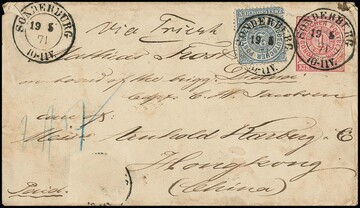 SONDERBURG
19 5
71
10-11V.
SONDERBURG
19 5
10-11V.
SONDERBURG
19 5
71
10-11V.
via Triest
Mathias
on board of the brigg
Capt. C. M. Jacobsen
care of
Arnhold Karberg &
Hongkong
(China)
Paid.